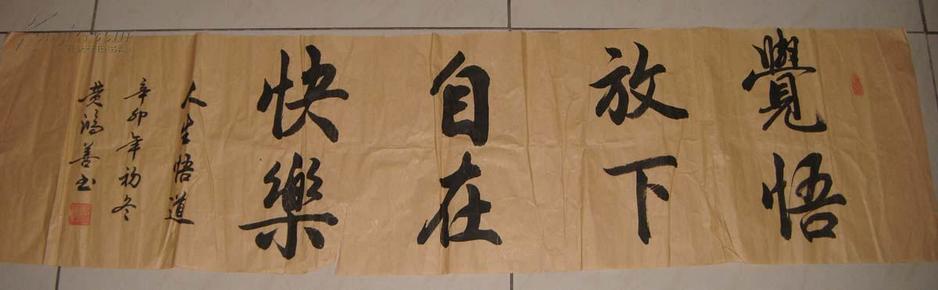 覺悟
放下
自在
快樂
人生悟道
辛卯年初冬
黄鴻善书